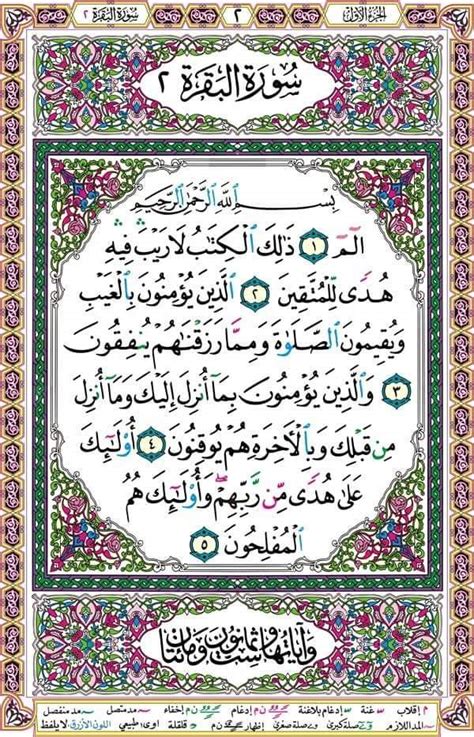 الجزء الأول ٢ سورة البقرة ٢
سُورَةُ البَقَرَةِ ٢
بِسْمِ اللَّهِ الرَّحْمَٰنِ الرَّحِيمِ
الٓمٓ ١ ذَٰلِكَ الْكِتَٰبُ لَا رَيْبَ ۛ فِيهِ ۛ
هُدًى لِّلْمُتَّقِينَ ٢ الَّذِينَ يُؤْمِنُونَ بِالْغَيْبِ
وَيُقِيمُونَ الصَّلَوٰةَ وَمِمَّا رَزَقْنَٰهُمْ يُنفِقُونَ
٣ وَالَّذِينَ يُؤْمِنُونَ بِمَآ أُنزِلَ إِلَيْكَ وَمَآ أُنزِلَ
مِن قَبْلِكَ وَبِالْآخِرَةِ هُمْ يُوقِنُونَ ٤ أُولَٰٓئِكَ
عَلَىٰ هُدًى مِّن رَّبِّهِمْ ۖ وَأُولَٰٓئِكَ هُمُ
الْمُفْلِحُونَ ٥
وآياتها ست وثمانون ومائتان
م إقلاب س غنة إدغام بلاغنة ن م إدغام ن م إخفاء مد متصل مد منفصل
المد اللازم صلة كبرى صلة صغرى إظهار ن م قلقلة اوى: طبيعي اللون الأزرق لا يلفظ